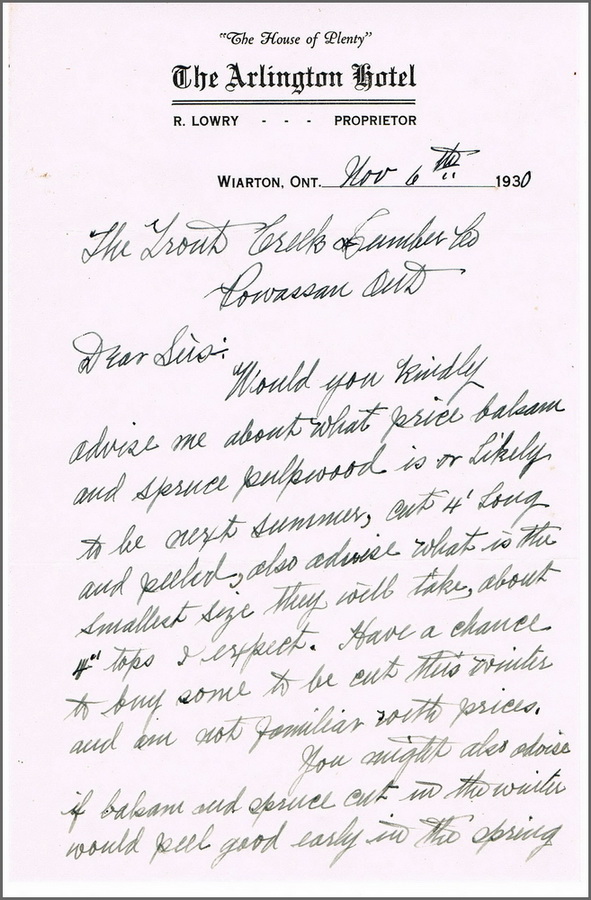 "The House of Plenty"
The Arlington Hotel
R. LOWRY - - - PROPRIETOR
WIARTON, ONT. Nov 6th 1930
The Trout Creek Lumber Co
Powassan Ont
Dear Sirs:
Would you kindly
advise me about what price balsam
and spruce pulpwood is or likely
to be next summer, cut 4' long
and peeled, also advise what is the
smallest size they will take, about
4" tops I expect. Have a chance
to buy some to be cut this winter
and am not familiar with prices.
You might also advise
if balsam and spruce cut in the winter
would peel good early in the spring